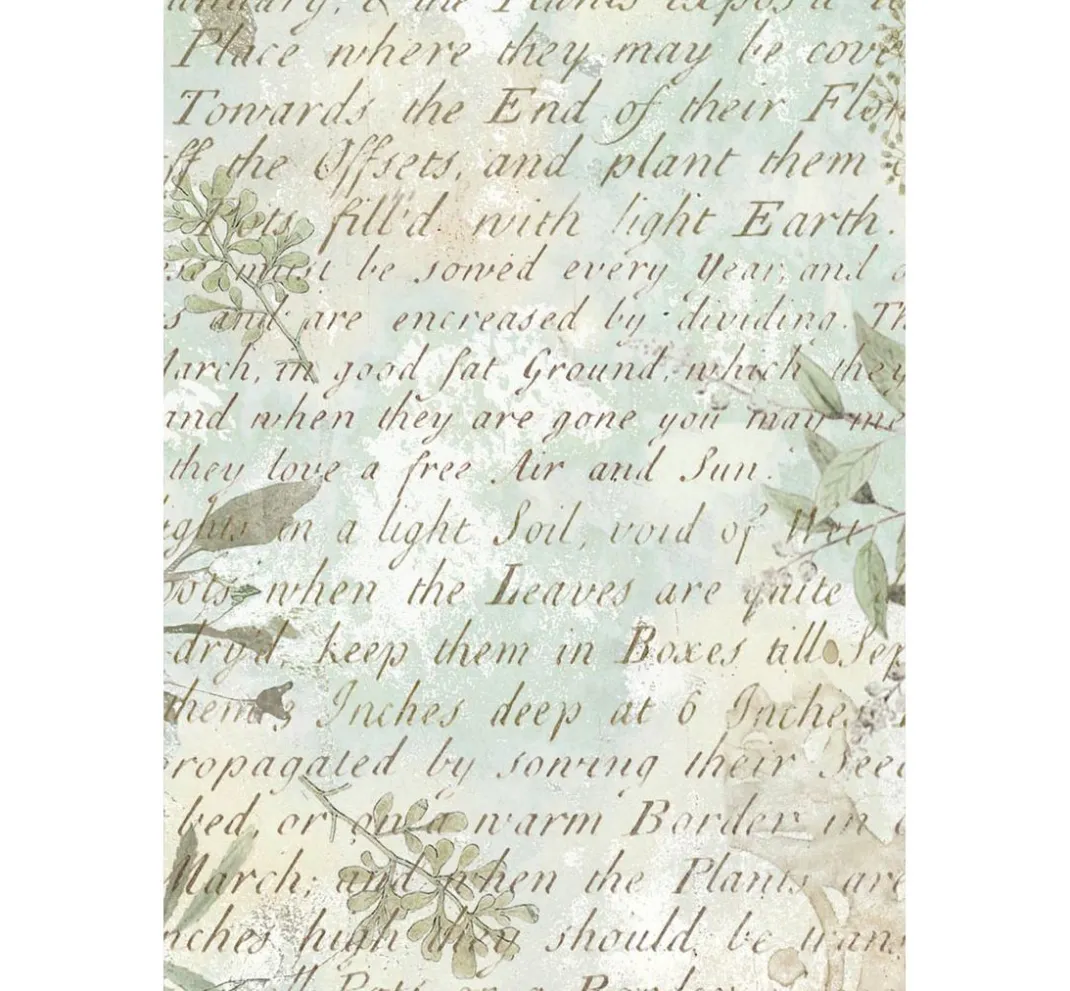 & the Plants expos'd
Place where they may be cove
Towards the End of their Flo
ff the Offsets, and plant them
Pots fill'd with light Earth.
must be sowed every Year, and
s and are encreased by dividing. Th
arch, in good fat Ground, which they
and when they are gone you may
they love a free Air and Sun.
ights in a light Soil, void of Wet
when the Leaves are quite
dry'd, keep them in Boxes till Sep
them 3 Inches deep at 6 Inches
propagated by sowing their See
bed, or on a warm Border in
March; and when the Plants are
nches high they should be trans
Pots or a Border